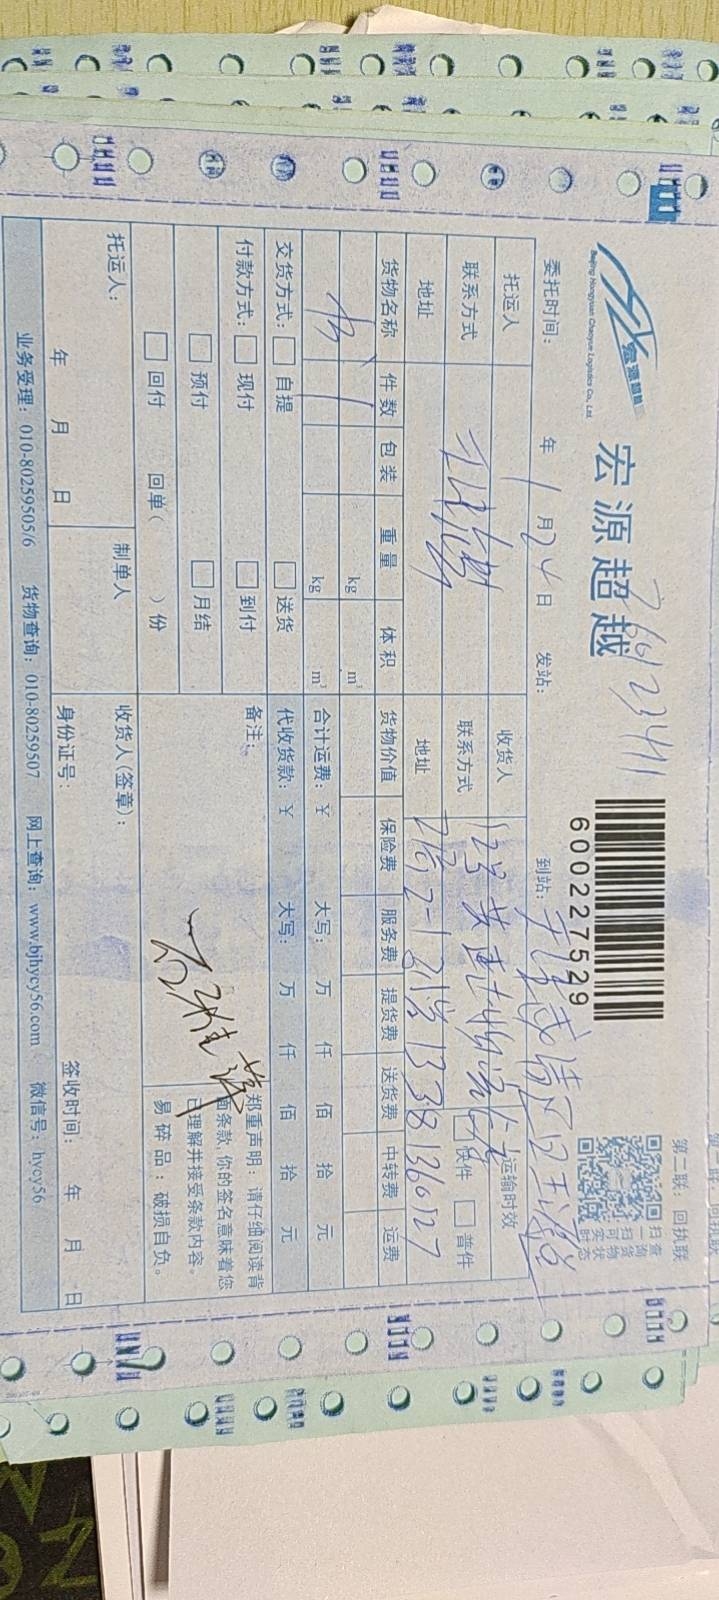 宏源智能
Beijing Hongyuan Chaoyue Logistics Co., Ltd.
宏源超越
600227529
第二联：回执联
扫一扫可实时
查询货物状态
委托时间： 年 1月24日 发站： 到站：
托运人
收货人
联系方式
联系方式
地址
地址
运输时效
快件 普件
货物名称 件数 包装 重量 体积 货物价值 保险费 服务费 提货费 送货费 中转费 运费
1 kg m³
kg m³
合计运费：¥ 大写： 万 仟 佰 拾 元
交货方式： 自提 送货
代收货款：¥ 大写： 万 仟 佰 拾 元
付款方式： 现付 到付
预付 月结
回付 回单（ ）份
备注：
郑重声明：请仔细阅读背
面条款,你的签名意味着您
已理解并接受条款内容。
易碎品：破损自负。
托运人：
年 月 日
制单人
收货人(签章)：
身份证号：
签收时间： 年 月 日
业务受理：010-80259505/6 货物查询：010-80259507 网上查询：www.bjhycy56.com 微信号：hycy56